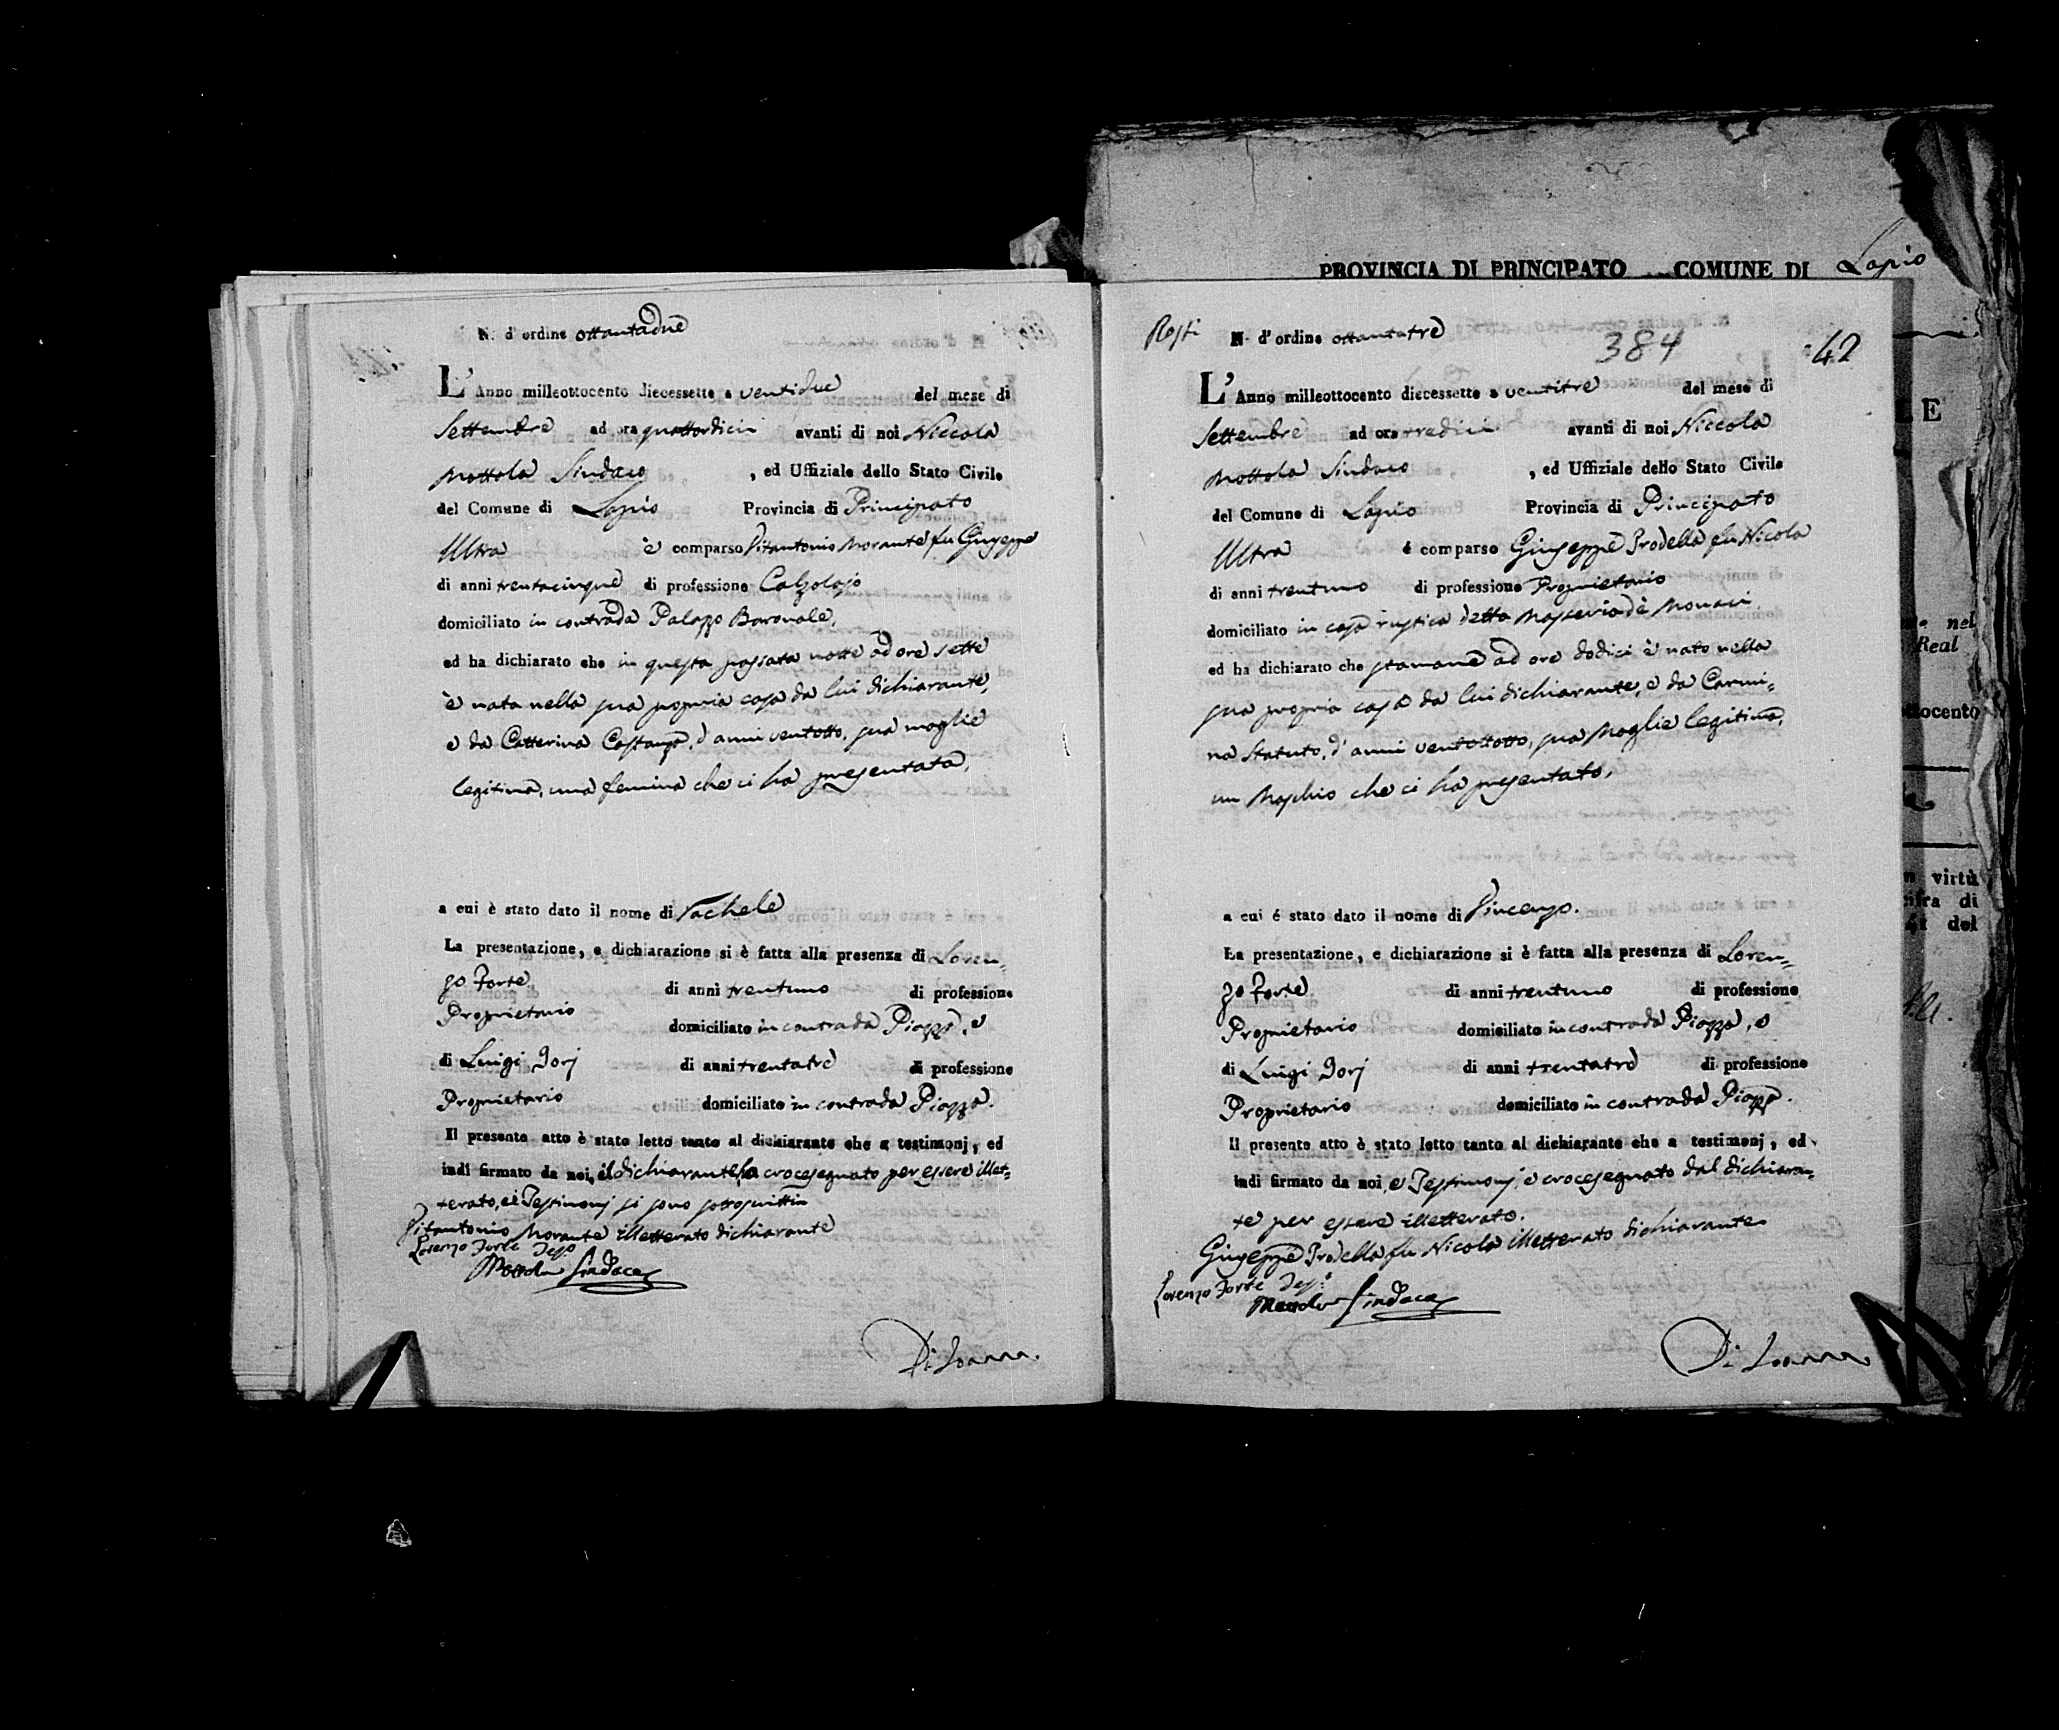 PROVINCIA DI PRINCIPATO COMUNE DI Lapio
N. d'ordine ottantadue
L'Anno milleottocento diecessette a ventidue del mese di
Settembre ad ora quattordici avanti di noi Niccola
Mottola Sindaco , ed Uffiziale dello Stato Civile
del Comune di Lapio Provincia di Principato
Ultra è comparso Vitantonio Morante fu Giuseppe
di anni trentacinque di professione Calzolajo
domiciliato in contrada Palazzo Baronale,
ed ha dichiarato che in questa passata notte ad ore sette
è nata nella sua propria casa da lui dichiarante,
e da Catterina Costanza, d'anni ventotto, sua moglie
legitima, una femina che ci ha presentata,
a cui è stato dato il nome di Rachele
La presentazione, e dichiarazione si è fatta alla presenza di Loren=
zo Forte di anni trentuno di professione
Proprietario domiciliato in contrada Piazza, e
di Luigi Iorj di anni trentatre di professione
Proprietario domiciliato in contrada Piazza.
Il presente atto è stato letto tanto al dichiarante che a testimonj, ed
indi firmato da noi, il dichiarante ha crocesegnato per essere illet=
terato, e i Testimonj si sono sottoscritti
Vitantonio Morante illetterato dichiarante
Lorenzo Forte Tes.º
Mottola Sindaco
Di Ioanna.
Rosti
N. d'ordine ottantatre
384
42
L'Anno milleottocento diecessette a ventitre del mese di
Settembre ad ora tredici avanti di noi Niccola
Mottola Sindaco , ed Uffiziale dello Stato Civile
del Comune di Lapio Provincia di Principato
Ultra é comparso Giuseppe Prodella fu Nicola
di anni trentuno di professione Proprietario
domiciliato in casa rustica detta Masseria de' Monaci,
ed ha dichiarato che stamane ad ore dodici è nato nella
sua propria casa da lui dichiarante, e da Carmi=
na Statuto, d'anni ventottotto, sua Moglie legitima,
un Maschio che ci ha presentato,
a cui é stato dato il nome di Vincenzo.
La presentazione, e dichiarazione si è fatta alla presenza di Loren=
zo Forte di anni trentuno di professione
Proprietario domiciliato in contrada Piazza, e
di Luigi Iorj di anni trentatre di professione
Proprietario domiciliato in contrada Piazza.
Il presente atto è stato letto tanto al dichiarante che a testimonj, ed
indi firmato da noi, e Testimonj, e crocesegnato dal dichiaran=
te per essere illetterato.
Giuseppe Prodella fu Nicola illetterato dichiarante
Lorenzo Forte Tes.º
Mottola Sindaco
Di Ioanna.
LE
nel
Real
ottocento
virtù
di
del